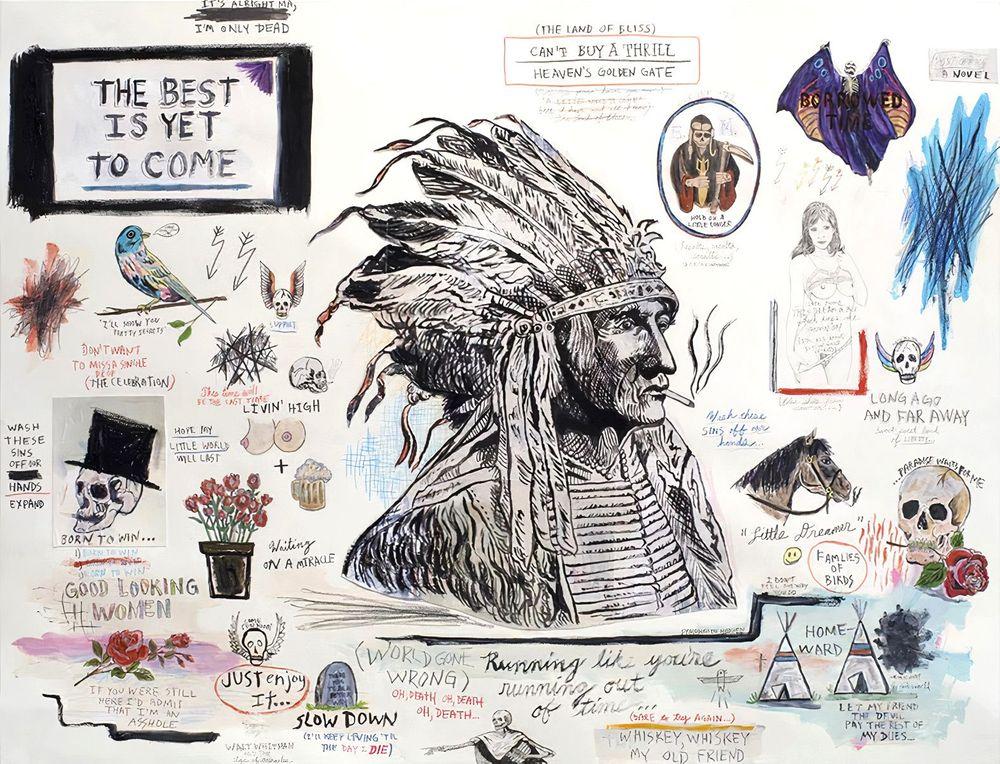 IT'S ALRIGHT MA,
I'M ONLY DEAD
(THE LAND OF BLISS)
CAN'T BUY A THRILL
HEAVEN'S GOLDEN GATE
A NOVEL
THE BEST
IS YET
TO COME
BORROWED
TIME
E. M.
HOLD ON A
LITTLE LONGER
"I'LL SHOW YOU
PRETTY SECRETS"
SUPPORT
DON'T WANT
TO MISS A SINGLE
DROP
(THE CELEBRATION)
This time will
BE THE LAST TIME
LIVIN' HIGH
HOPE MY
LITTLE WORLD
WILL LAST
+
WASH
THESE
SINS
OFF OUR
HANDS
EXPAND
BORN TO WIN...
1) BORN TO WIN
BORN TO WIN
GOOD LOOKING
WOMEN
Waiting
ON A MIRACLE
Wash these
SINS off our
hands...
LONG AGO
AND FAR AWAY
sweet sweet land
of LIBERTY...
...PARADISE WAITS FOR ME
"Little Dreamer"
FAMLIES
OF
BIRDS
I DON'T
FEEL
HOME-
WARD
LET MY FRIEND
THE DEVIL
PAY THE REST OF
MY DUES...
(WORLD GONE
WRONG)
OH, DEATH OH, DEATH
OH, DEATH...
Running like you're
running out
of time...
(DARE to try AGAIN...)
WHISKEY, WHISKEY
MY OLD FRIEND
JUST enjoy
IT...
SLOW DOWN
(I'LL KEEP LIVING 'TIL
THE DAY I DIE)
IF YOU WERE STILL
HERE I'D ADMIT
THAT I'M AN
ASSHOLE
WALT WHITMAN